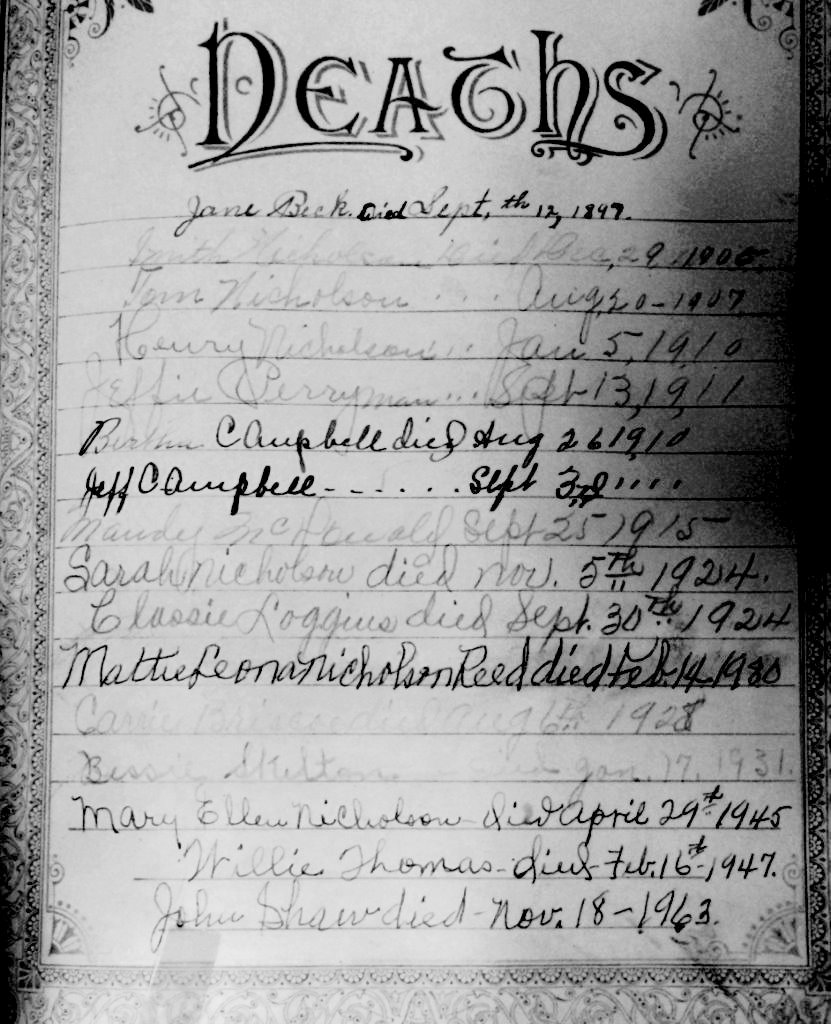 DEATHS
Jane Beck. Died Sept. th 12, 1897.
Smith Nicholson Died Dec, 29, 1906
Tom Nicholson . . . Aug, 20 - 1907
Henry Nicholson . . Jan 5, 1910
Jeffie Perryman . . . Sept 13, 1911
CAmpbell died Aug 26 1910
Jeff CAmpbell - - . . . . Sept 3rd " "
Mandy McDonald Sept 25 1915
Sarah Nicholson died nov. 5th 1924.
Classie Loggins died Sept. 30th 1924
Mattie Leona Nicholson Reed died Feb. 14, 1980
Carrie Briscoe died Aug 6th 1928
Bessie Skelton died Jan. 17, 1931.
Mary Ellen Nicholson - died April 29th 1945
Willie Thomas - died - Feb. 16th - 1947.
John Shaw died - Nov. 18 - 1963.